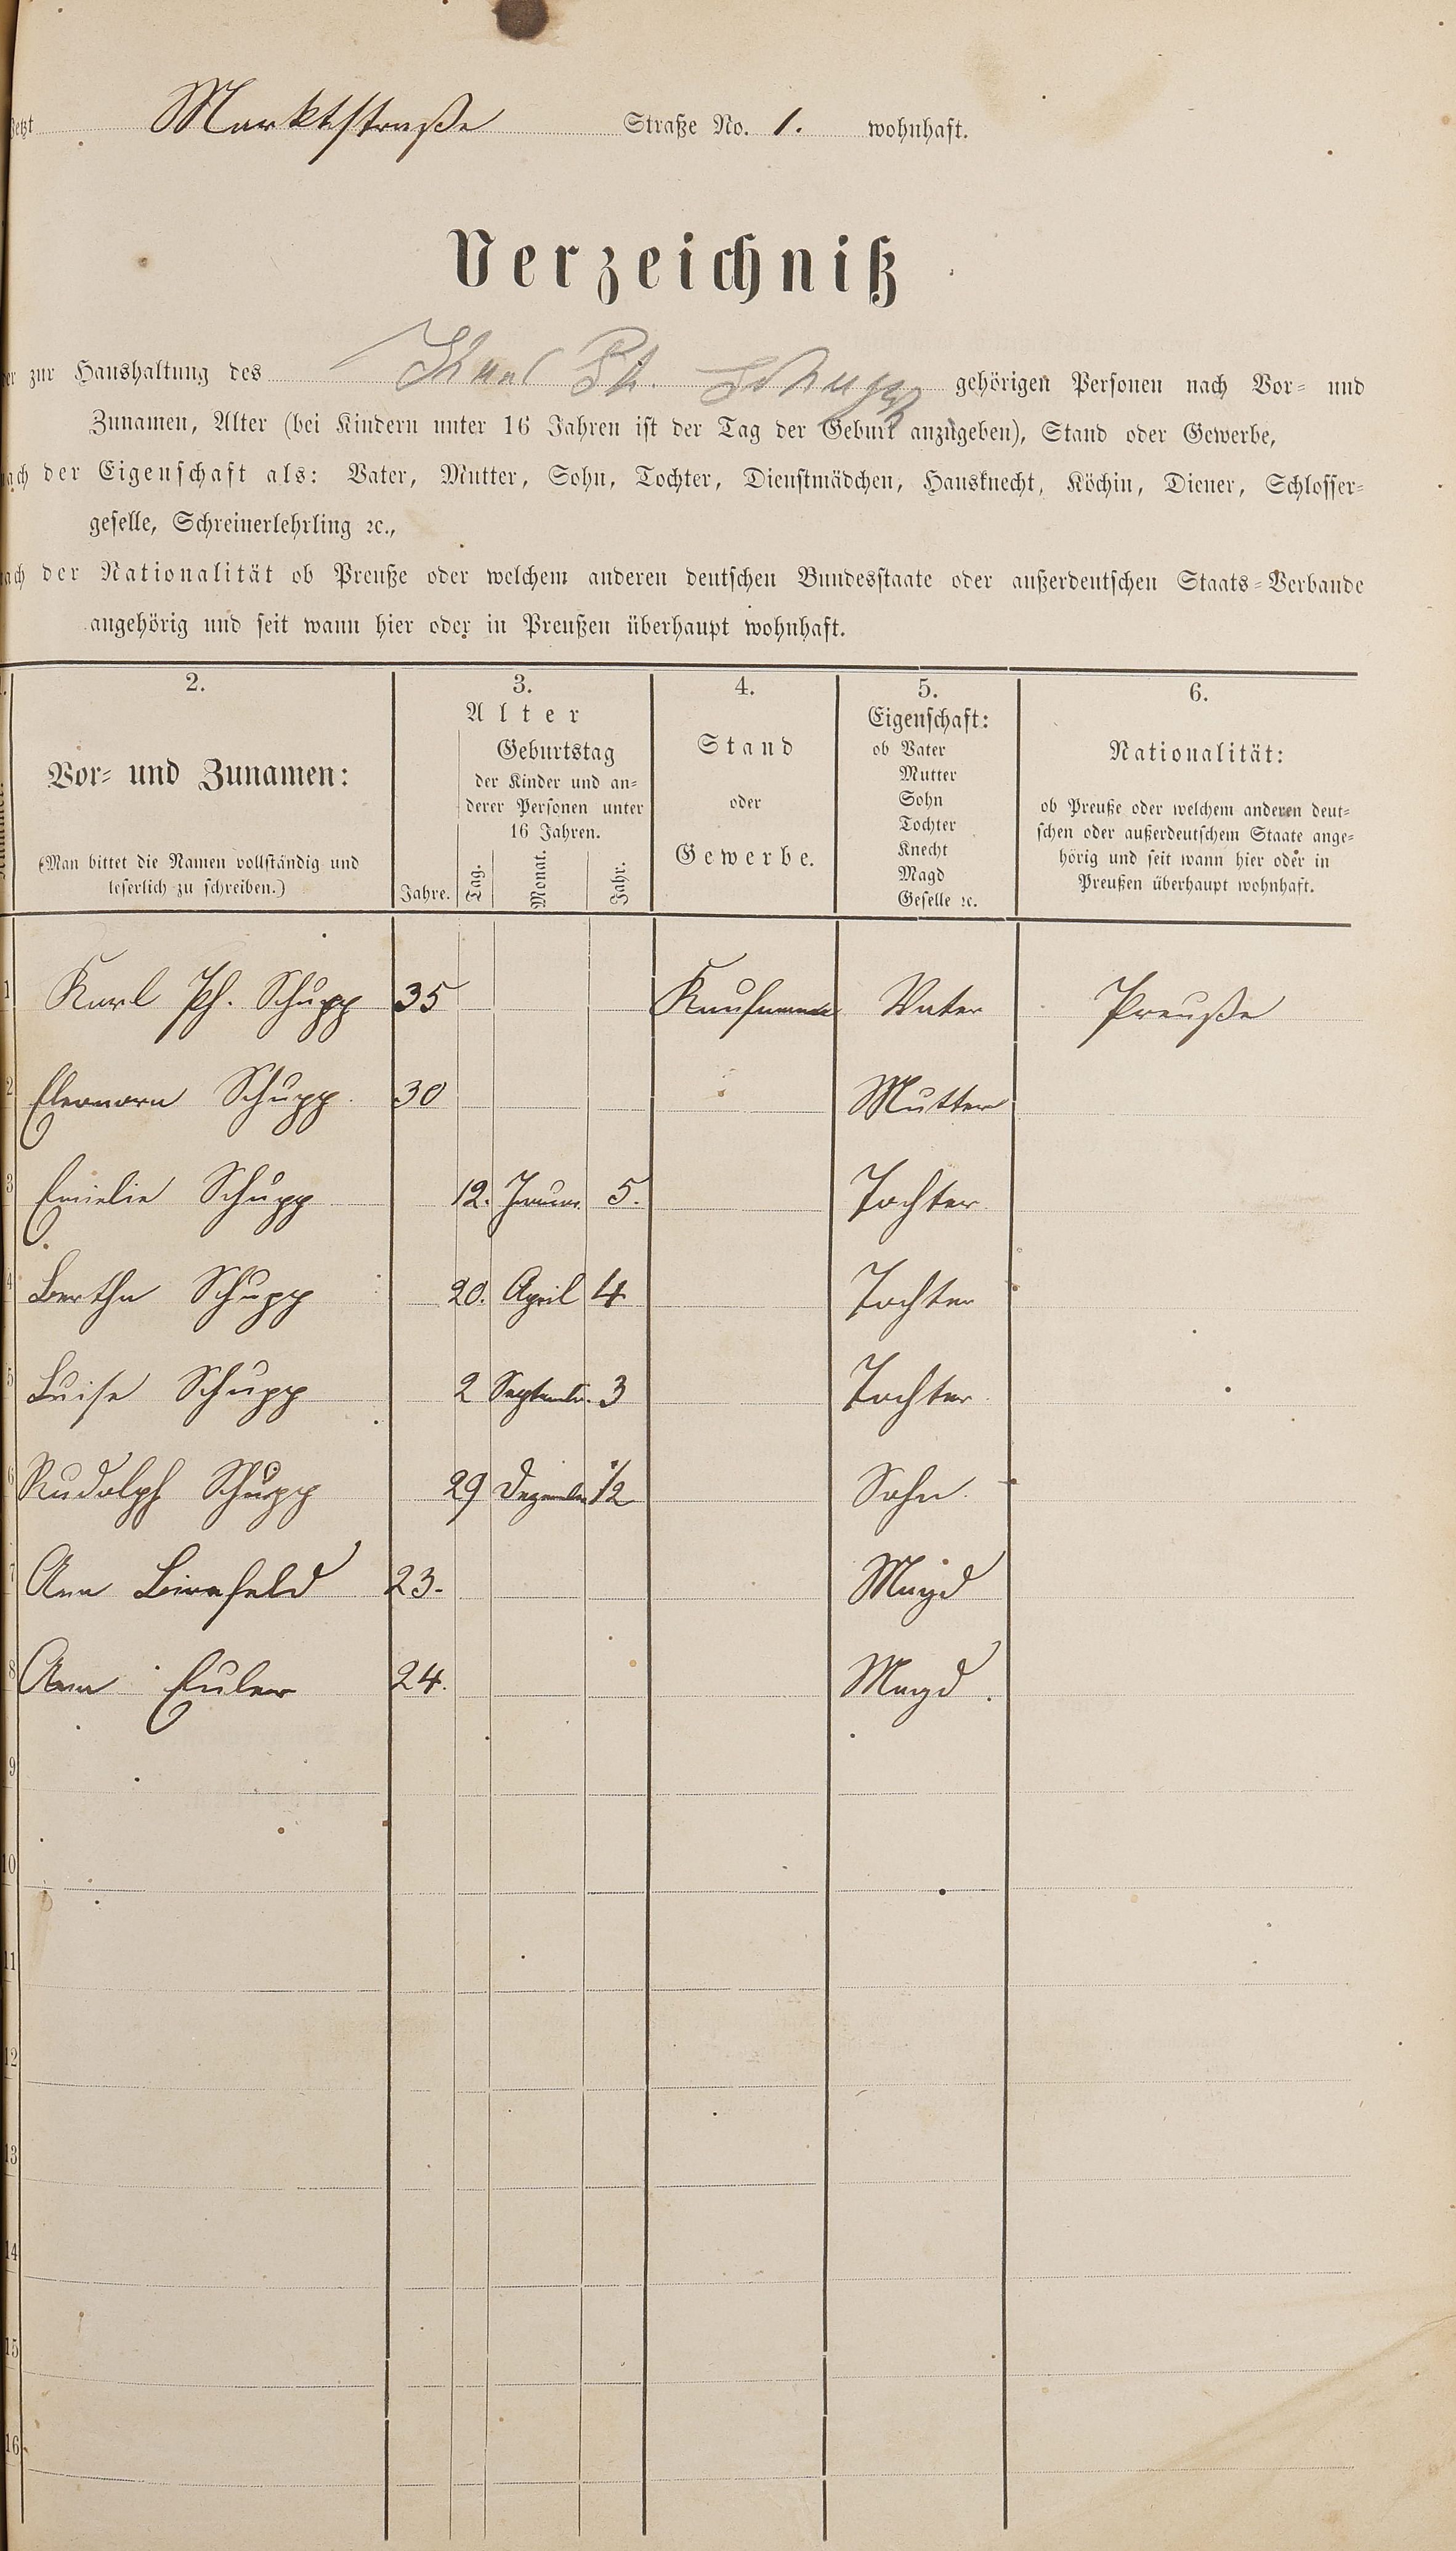 Jetzt Marktstraße Straße No. 1. wohnhaft.
Verzeichniß
der zur Haushaltung des Ph. Schupp gehörigen Personen nach Vor- und
Zunamen, Alter (bei Kindern unter 16 Jahren ist der Tag der Geburt anzugeben), Stand oder Gewerbe,
nach der Eigenschaft als: Vater, Mutter, Sohn, Tochter, Dienstmädchen, Hausknecht, Köchin, Diener, Schlosser-
geselle, Schreinerlehrling ꝛc.,
nach der Nationalität ob Preuße oder welchem anderen deutschen Bundesstaate oder außerdeutschen Staats-Verbande
angehörig und seit wann hier oder in Preußen überhaupt wohnhaft.
2.
Vor- und Zunamen:
(Man bittet die Namen vollständig und
leserlich zu schreiben.)
3.
Alter
Jahre.
Geburtstag
der Kinder und an-
derer Personen unter
16 Jahren.
Tag. Monat. Jahr.
4.
Stand
oder
Gewerbe.
5.
Eigenschaft:
ob Vater
Mutter
Sohn
Tochter
Knecht
Magd
Geselle ꝛc.
6.
Nationalität:
ob Preuße oder welchem anderen deut-
schen oder außerdeutschem Staate ange-
hörig und seit wann hier oder in
Preußen überhaupt wohnhaft.
1 Karl Ph. Schupp 35 Kaufmann Vater Preuße
2 Eleonora Schupp. 30 Mutter
3 Emielie Schupp 12. Januar 5. Tochter
4 Bertha Schupp 20. April 4 Tochter
5 Luise Schupp 2 Septembr. 3 Tochter
6 Rudolph Schupp 29 Dezember 1/2 Sohn
7 Ana Birnfeld 23. Magd
8 Ana Euler 24. Magd.
9
10
11
12
13
14
15
16